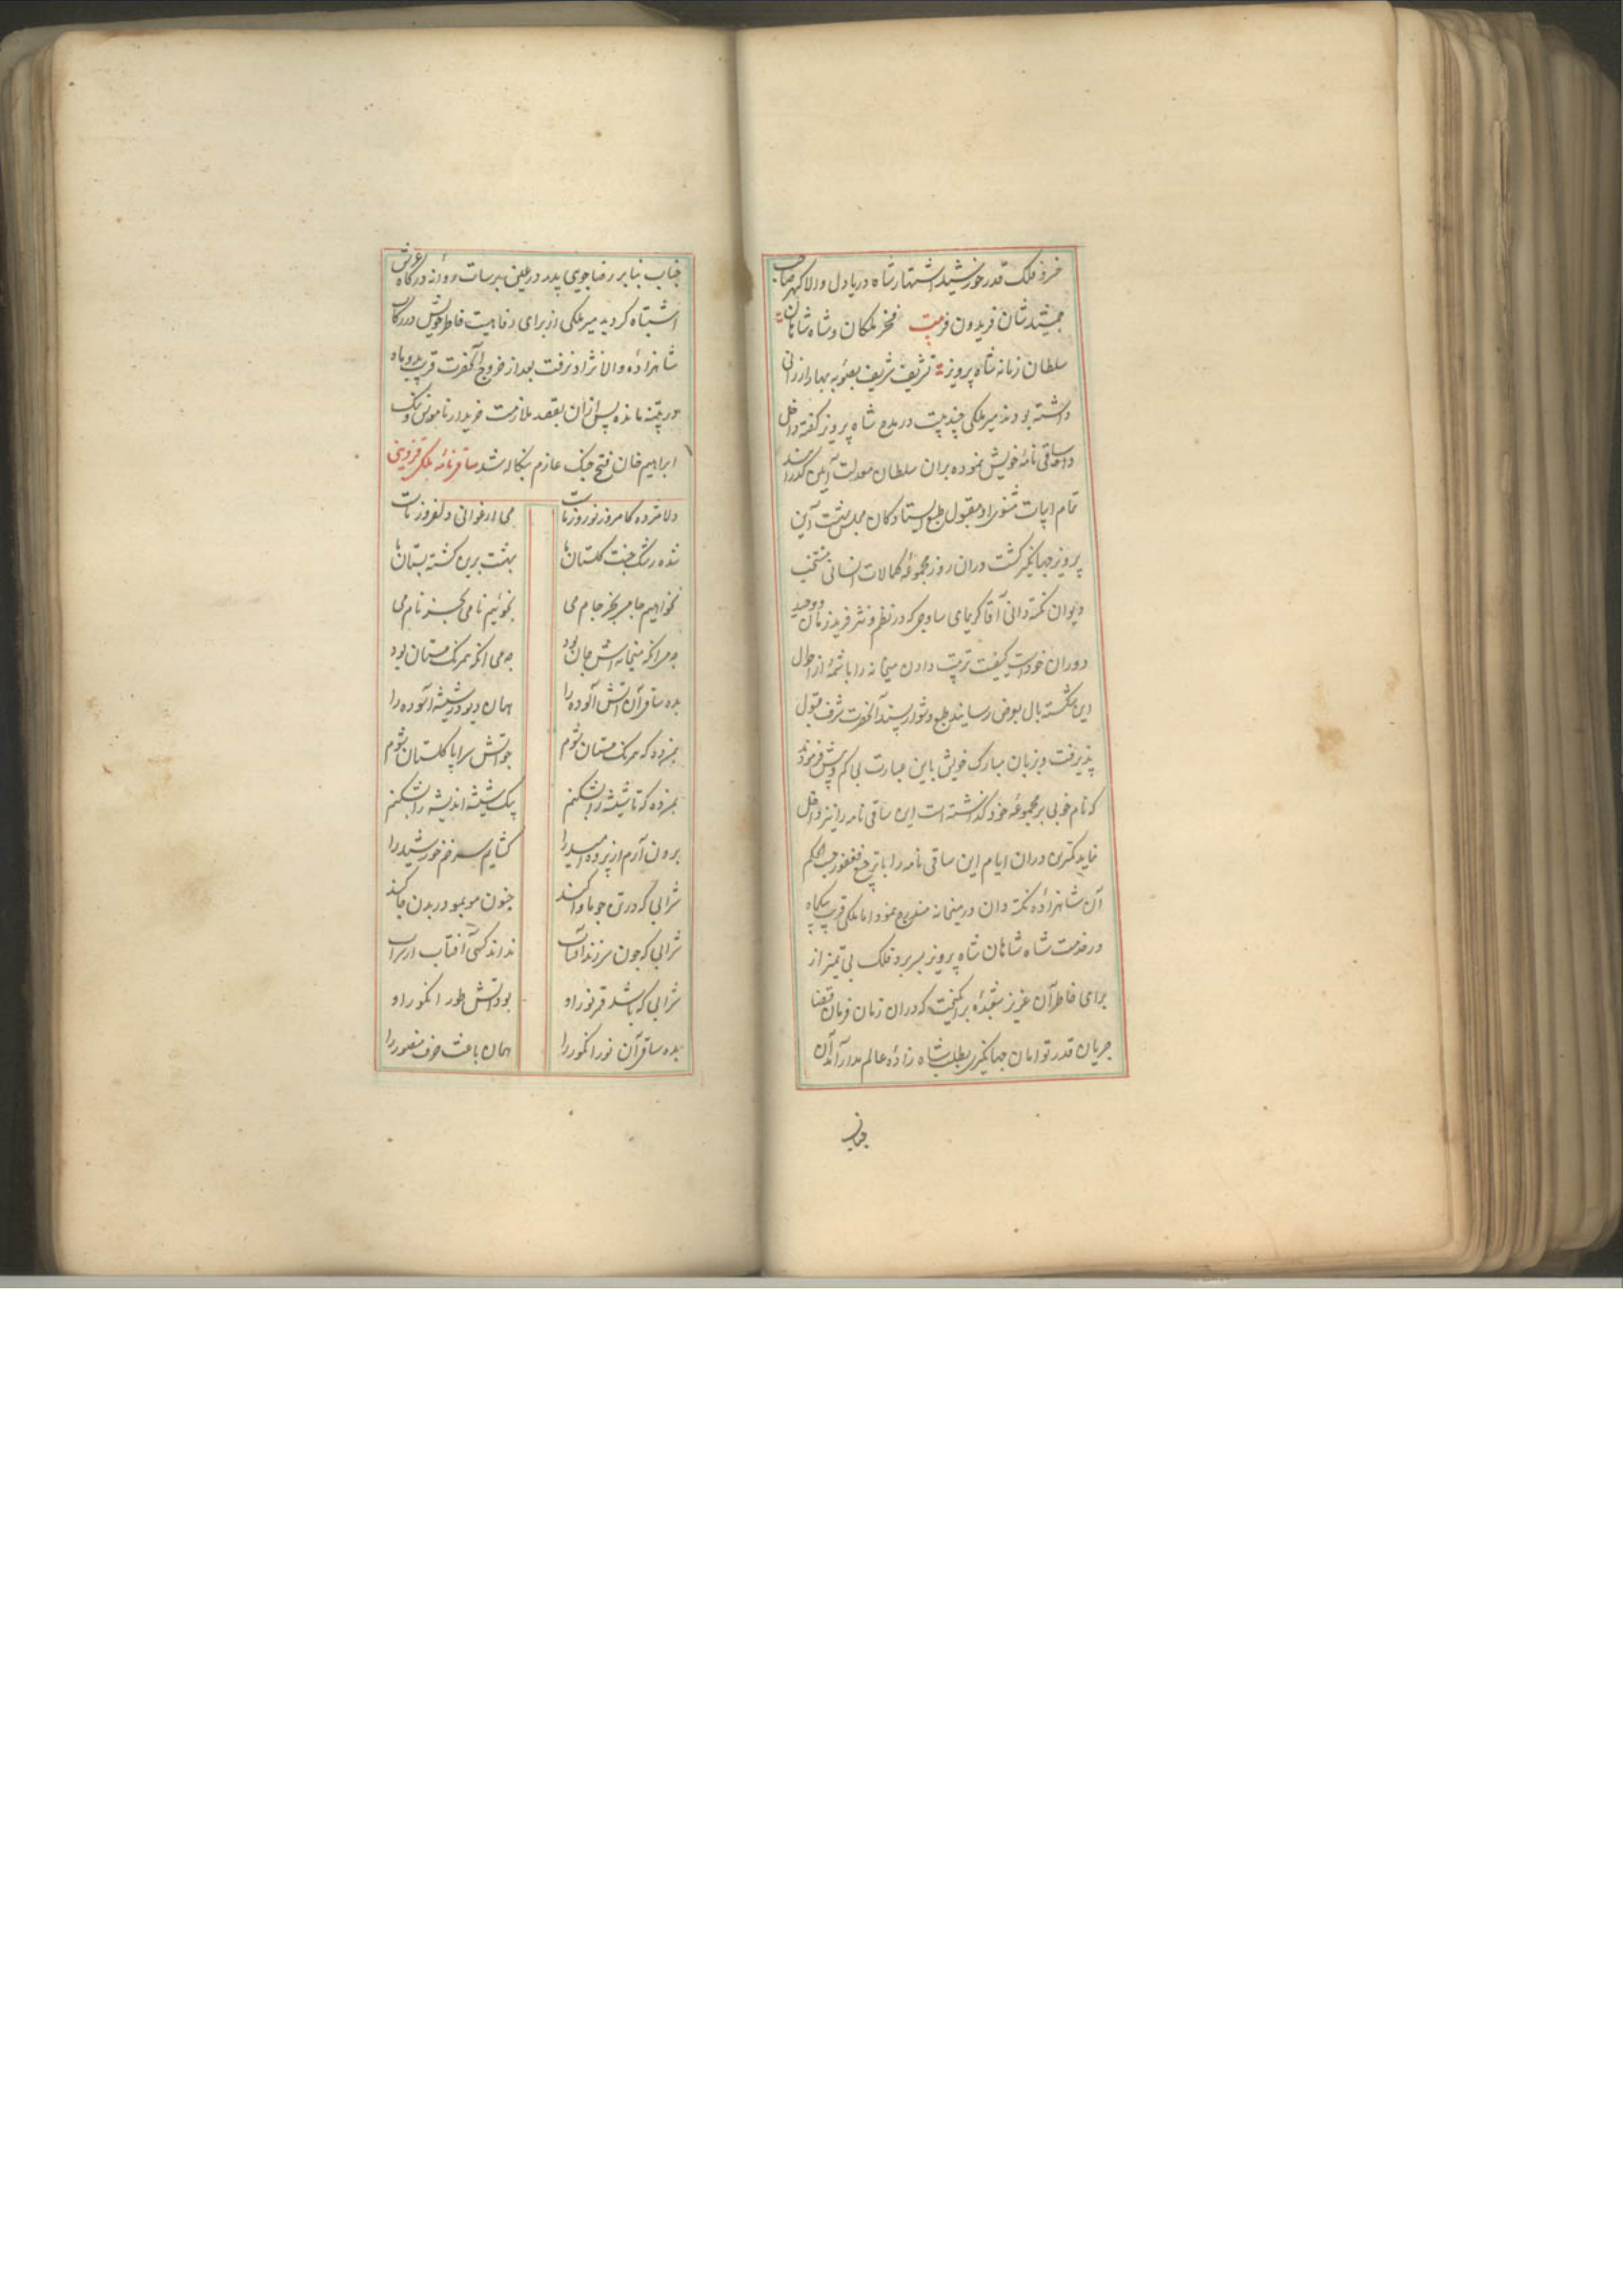 خسرو فلک قدر خورشید اشتهار شاه دریا دل والا گهر صاحب
جمشید شان فریدون فر بیت فخر ملکان و شاه شاهان
سلطان زمانه شاه پرویز تشریف شریف بصوبه بهار ارزانی
داشته بودند میر ملکی چند بیت در مدح شاه پرویز گفته داخل
ساقی نامهٔ خویش نموده بران سلطان معدلت آیین گذرانید
تمام ابیات مثنوی او مقبول طبع ایستادگان مجلس بهشت آیین
پرویز جهانگیر گشت دران روز مجموعهٔ کمالات انسانی منتخب
دیوان نکته دانی آقا کریمای ساوجی که در نظم و نثر فرید زمان و وحید
دوران خود است کیفیت ترتیب دادن میخانه را با شمهٔ از احوال
این شکسته بال بعرض رسانید طبع دشوار پسند آنحضرت شرف قبول
پذیرفت و بزبان مبارک خویش باین عبارت بی کم و بیش فرمودند
که نام خوبی بر مجموعه خود گذاشته است این ساقی نامه را نیز داخل
نماید کمترین دران ایام این ساقی نامه را با ترجیع فغفور حسب الحکم
آن شاهزادهٔ نکته دان در میخانه مندرج نمود اما ملکی قریب یکماه
در خدمت شاه شاهان شاه پرویز بسر برد فلک بی تمیز از
برای خاطر آن عزیز شعبدهٔ برانگیخت که دران زمان فرمان قضا
جریان قدر توامان جهانگیری بطلب شاه زادهٔ عالم مدار آمد آن
جناب
جناب بنابر رضا جوی پدر در عین برسات روانه درگاه عرش
اشتباه گردید میر ملکی از برای رفاهیت خاطر خویش در رکاب
شاهزادهٔ والا نژاد نرفت بعد از خروج آنحضرت قریب بدو ماه
در پتنه مانده پس از آن بقصد ملازمت خریدار ناموس و ننگ
ابراهیم خان فتح جنگ عازم بنگاله شد ساقی نامهٔ ملکی قزوینی
دلا مژده کامروز نوروز ماست می ارغوانی دلفروز ماست
شده رشک جنت گلستان ما بهشت برین گشته بستان ما
نخواهیم جامی بجز جام می نجوئیم نامی بجز نام می
چه می آنکه میخانه اش جان بود چه می آنکه همرنگ مستان بود
بده ساقی آن آتش آلوده را همان دیو در شیشه آسوده را
بمن ده که همرنگ مستان شوم چو آتش سراپا گلستان شوم
بمن ده که تا شیشه را بشکنم یک شیشه اندیشه را بشکنم
برون آرم از پرده امید را گشایم سر خم خورشید را
شرابی که در تن چو ماوا کند جنون مو بمو در بدن جا کند
شرابی که چون سر زند آفتاب نداند کسی آفتاب از سراب
شرابی که باشد قمر نور او بود آتش طور انگور او
بده ساقی آن نور انگور را همان باعث خون منصور را